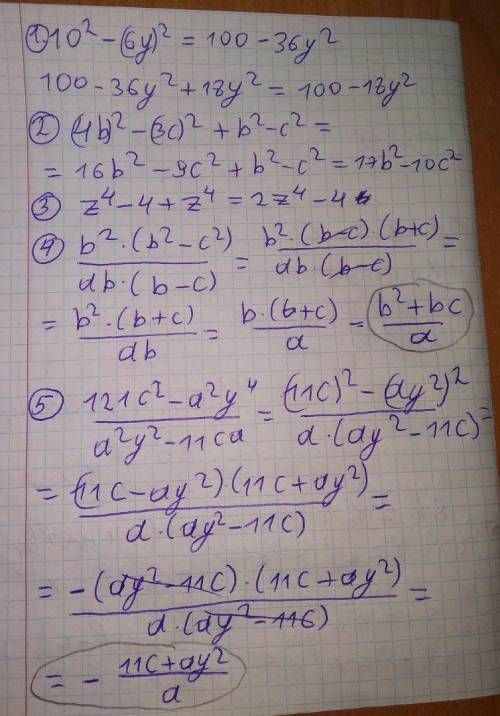 ① 10² - (6y)² = 100 - 36y²
100 - 36y² + 18y² = 100 - 18y²
② (4b)² - (3c)² + b² - c² =
= 16b² - 9c² + b² - c² = 17b² - 10c²
③ z⁴ - 4 + z⁴ = 2z⁴ - 4
④ b²·(b² - c²)/ab·(b - c) = b²·(b - c)·(b + c)/ab·(b - c) =
= b²·(b + c)/ab = b·(b + c)/a = b² + bc/a
⑤ 121c² - a²y⁴/a²y² - 11ca = (11c)² - (ay²)²/a·(ay² - 11c) =
= (11c - ay²)(11c + ay²)/a·(ay² - 11c) =
= -(ay² - 11c)·(11c + ay²)/a·(ay² - 11c) =
= - 11c + ay²/a